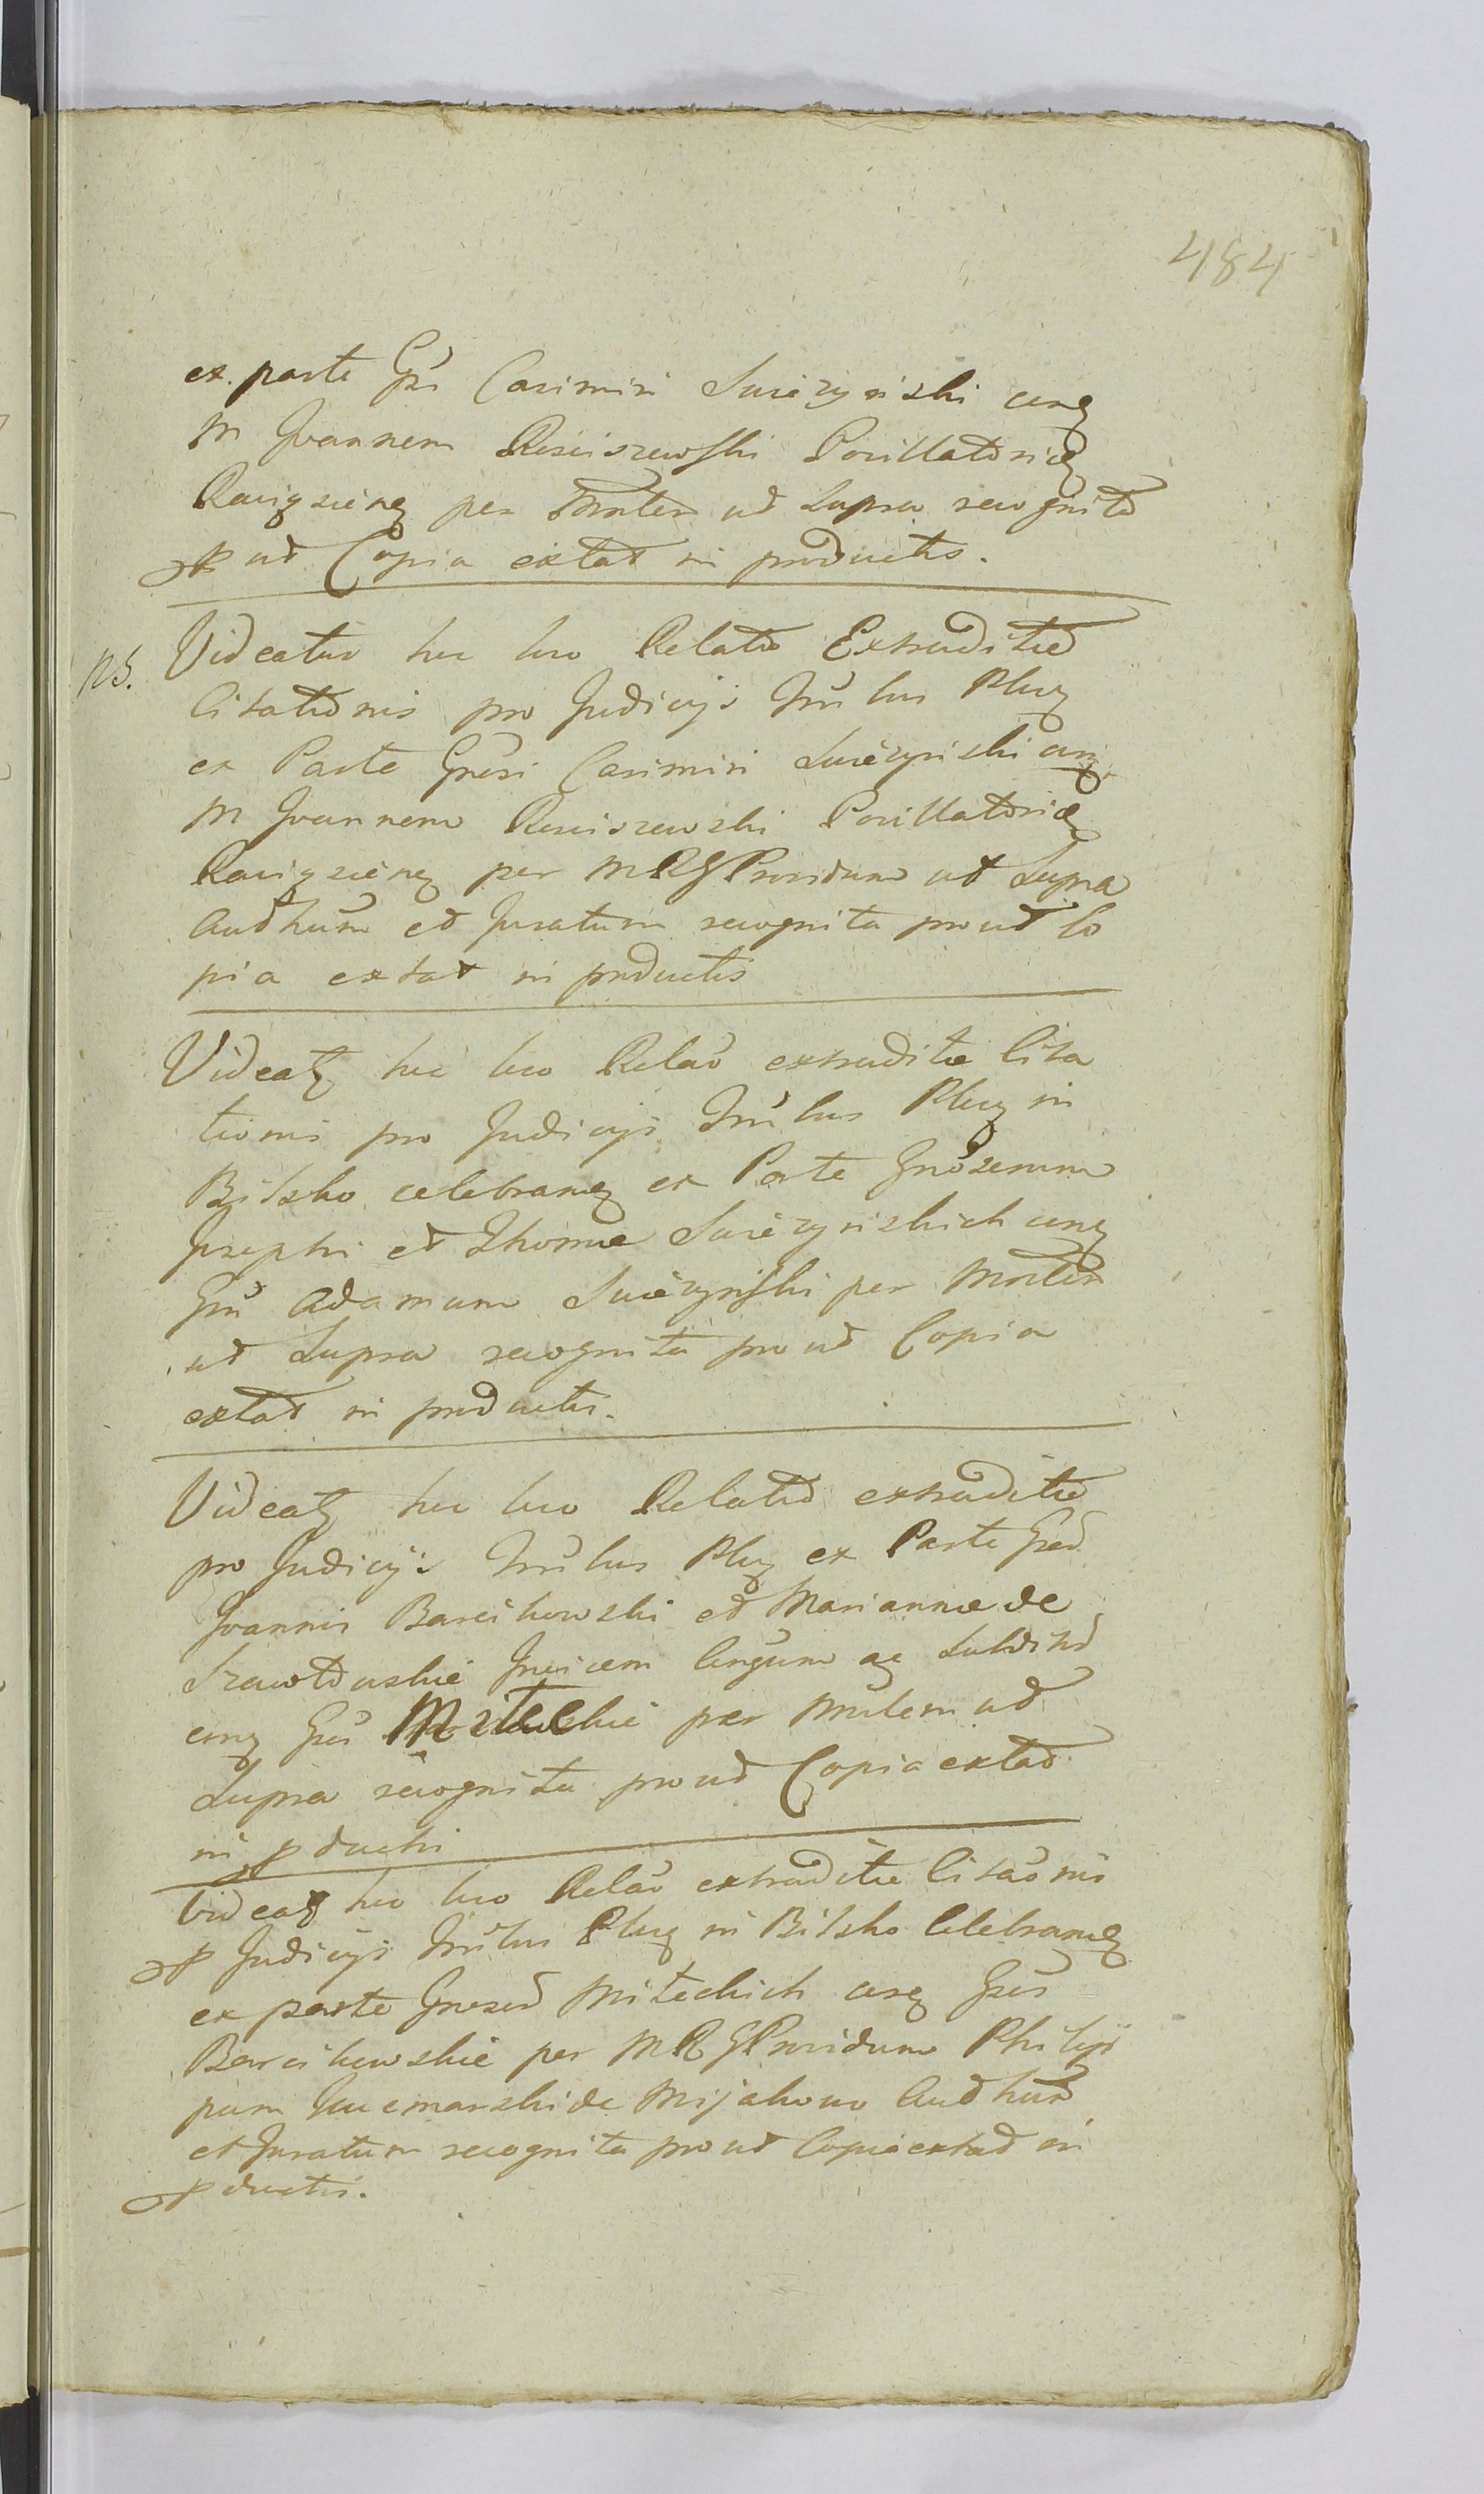 484
ex parte Gsi Casimiri Swiezynski cung
M Joannem Rosciszewski Pocillatorid
Raciązieng per Mntem ut Supra recognita
put Copia extat in productis.
NB. Videatur hic loco Relatio Extraditae
Citationis pro Judicijs Trnlbus Plug
ex Parte Gnosi Casimiri Swiezynski cung
M Joannem Rosciszewski Pocillatorid
Raciązieng per MRG Providum ut Supra
Authum et Juratum recognita prout Co
pia extat in productis
Videatz hic loco Relao extraditae Cita
tionis pro Judicijs Trnlbus Plug in
Bilsko celebrang ex Parte Gnosorum
Josephi et Thomae Swiezynskich cung
Gnu Adamum Swiezynski per Mntem
ut Supra recognita prout Copia
extat in productis.
Videatz hic loco Relatio extraditae
pro Judicijs Trnlbus Plug ex Parte
Joannis Barcikowski et Mariannae de
Invicem Cngum ac
cung Gsi per Mntem ut
Supra recognita prout Copia extat
in pductis
Videatz hic loco Relao extraditae Citaonis
p Judicijs Trnlbus Plug in Bilsko Celebrang
ex parte Gnosod Miteckich cung Gsos
Barcikowskie per MRG Providum Philip
pum de Mijakowo Authum
et Juratum recognita prout Copia extat in
pductis.